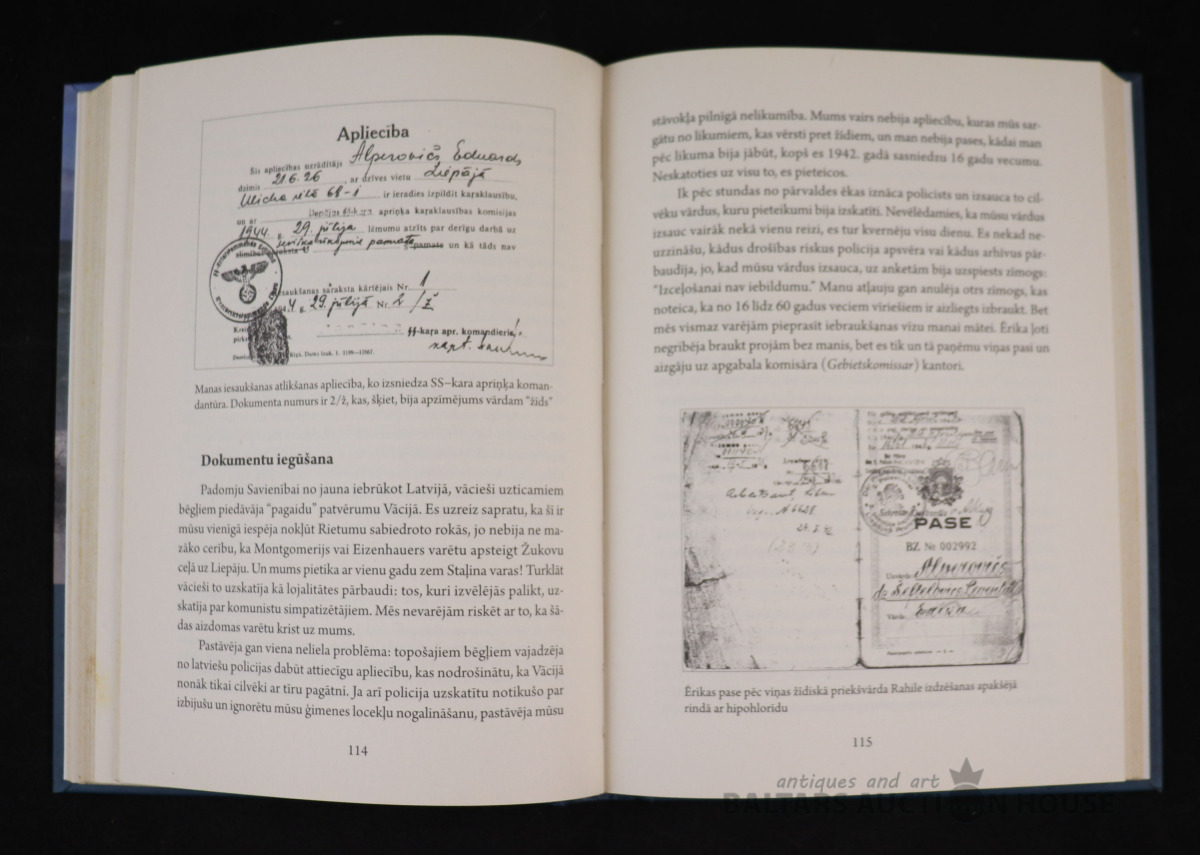 Apliecība
Šīs apliecības uzrādītājs Alperovičs Eduards
dzimis 21.6.26 ar dzīves vietu Liepājā
Micha ielā 68-1 ir ieradies izpildīt karaklausību,
un ar apriņķa karaklausības komisijas
1944. g. 29. jūlija lēmumu atzīts par derīgu darbā uz
pamata un kā tāds nav
esaukšanas sāraksta kārtējais Nr. 1
1944. g. 29. jūlijā Nr. 2/ž
SS-kara apr. komandieris
kapt.
Rīga, Dama izak. 1. 1199—12667.
Manas iesaukšanas atlikšanas apliecība, ko izsniedza SS–kara apriņķa koman-
dantūra. Dokumenta numurs ir 2/ž, kas, šķiet, bija apzīmējums vārdam "žīds"
Dokumentu iegūšana
Padomju Savienībai no jauna iebrūkot Latvijā, vācieši uzticamiem
bēgļiem piedāvāja "pagaidu" patvērumu Vācijā. Es uzreiz sapratu, ka šī ir
mūsu vienīgā iespēja nokļūt Rietumu sabiedroto rokās, jo nebija ne ma-
zāko cerību, ka Montgomerijs vai Eizenhauers varētu apsteigt Žukovu
ceļā uz Liepāju. Un mums pietika ar vienu gadu zem Staļina varas! Turklāt
vācieši to uzskatīja kā lojalitātes pārbaudi: tos, kuri izvēlējās palikt, uz-
skatīja par komunistu simpatizētājiem. Mēs nevarējām riskēt ar to, ka šā-
das aizdomas varētu krist uz mums.
Pastāvēja gan viena neliela problēma: topošajiem bēgļiem vajadzēja
no latviešu policijas dabūt attiecīgu apliecību, kas nodrošinātu, ka Vācijā
nonāk tikai cilvēki ar tīru pagātni. Ja arī policija uzskatītu notikušo par
izbijušu un ignorētu mūsu ģimenes locekļu nogalināšanu, pastāvēja mūsu
114
stāvokļa pilnīgā nelikumība. Mums vairs nebija apliecību, kuras mūs sar-
gātu no likumiem, kas vērsti pret žīdiem, un man nebija pases, kādai man
pēc likuma bija jābūt, kopš es 1942. gadā sasniedzu 16 gadu vecumu.
Neskatoties uz visu to, es pieteicos.
Ik pēc stundas no pārvaldes ēkas iznāca policists un izsauca to cil-
vēku vārdus, kuru pieteikumi bija izskatīti. Nevēlēdamies, ka mūsu vārdus
izsauc vairāk nekā vienu reizi, es tur kvernēju visu dienu. Es nekad ne-
uzzināšu, kādus drošības riskus policija apsvēra vai kādus arhīvus pār-
baudīja, jo, kad mūsu vārdus izsauca, uz anketām bija uzspiests zīmogs:
"Izceļošanai nav iebildumu." Manu atļauju gan anulēja otrs zīmogs, kas
noteica, ka no 16 līdz 60 gadus veciem vīriešiem ir aizliegts izbraukt. Bet
mēs vismaz varējām pieprasīt iebraukšanas vīzu manai mātei. Ērika ļoti
negribēja braukt projām bez manis, bet es tik un tā paņēmu viņas pasi un
aizgāju uz apgabala komisāra (Gebietskomissar) kantori.
PASE
BZ № 002992
Uzvārds Alperovičs
Vārds
Ērikas pase pēc viņas žīdiskā priekšvārda Rahile izdzēšanas apakšējā
rindā ar hipohlorīdu
115
antiques and art
BALTARS AUCTION HOUSE